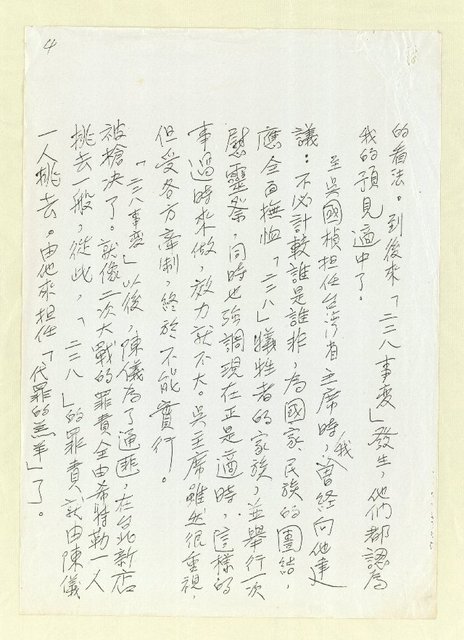 的看法。到後來「二二八事変」發生，他們都認為
我的預見適中了。
至吳國楨担任台湾省主席時，我曾経向他建
議：不必計較誰是誰非，為國家民族的團結，
應全面撫恤「二二八」犠牲者的家族，並舉行一次
慰靈祭，同時也強調現在正是適時，這樣的
事過時來做，效力就不大。吳主席雖然很重視，
但受各方牽制，終於不能實行。
「二二八事变」以後，陳儀為了通匪，在台北新店
被槍決了。就像二次大戰的罪責全由希特勒一人
挑去一般，從此，「二二八」的罪責就由陳儀
一人挑去。由他來担任「代罪的羔羊」了。
4